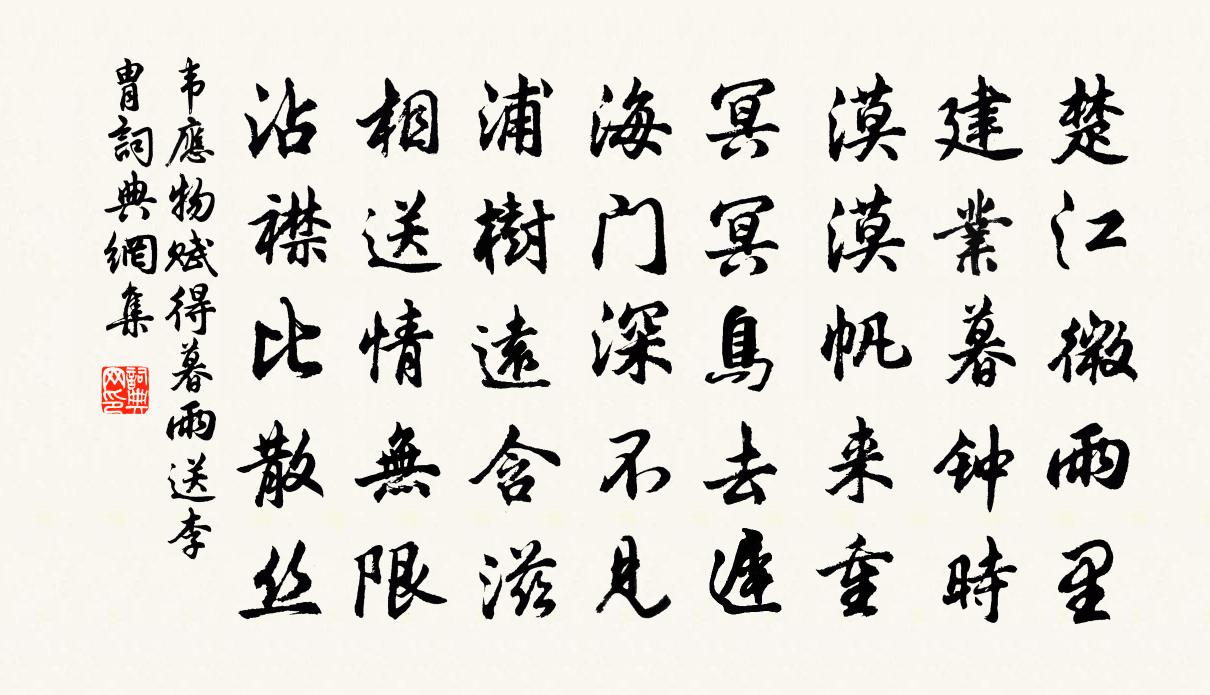 楚江微雨里
建業暮钟時
漠漠帆来重
冥冥鳥去遲
海门深不見
浦樹遠含滋
相送情無限
沾襟比散丝
韦應物赋得暮雨送李
胄詞典網集
詞典网印